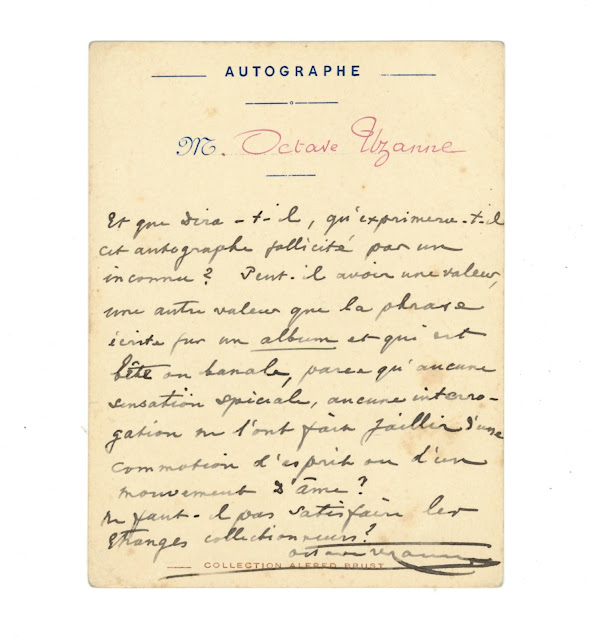 AUTOGRAPHE
M. Octave Uzanne
Et que dira-t-il, qu'exprimera-t-il
cet autographe sollicité par un
inconnu? Peut-il avoir une valeur,
une autre valeur que la phrase
écrite sur un album et qui est
bête ou banale, parce qu'aucune
sensation spéciale, aucune interro-
gation ne l'ont fait jaillir d'une
commotion d'esprit ou d'un
mouvement d'âme?
Ne faut-il pas satisfaire les
Etranges collectionneurs?
Octave Uzanne
COLLECTION ALFRED BRUST